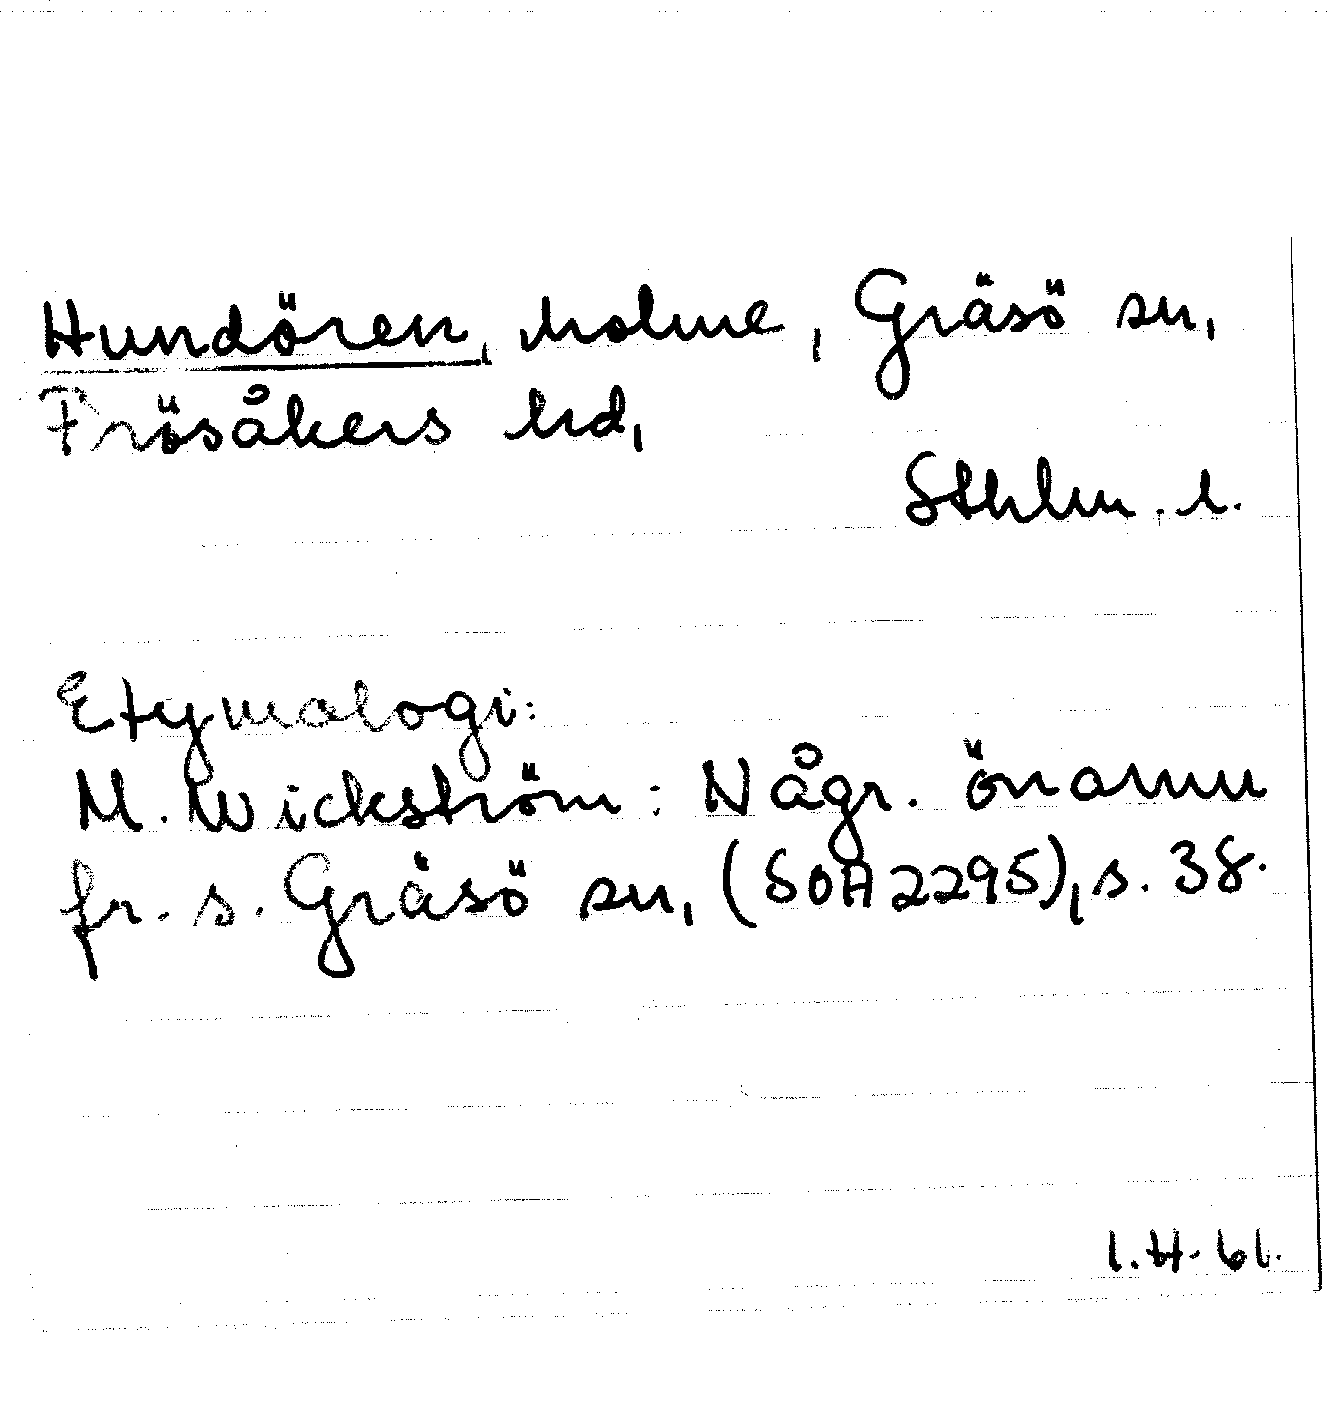 Hundören, holme, Gräsö sn,
Frösåkers hd,
Sthlm. l.
Etymologi:
M. Wickström: Någr. önamn
fr. s. Gräsö sn, (SOA 2295), s. 38.
I.H. 61.